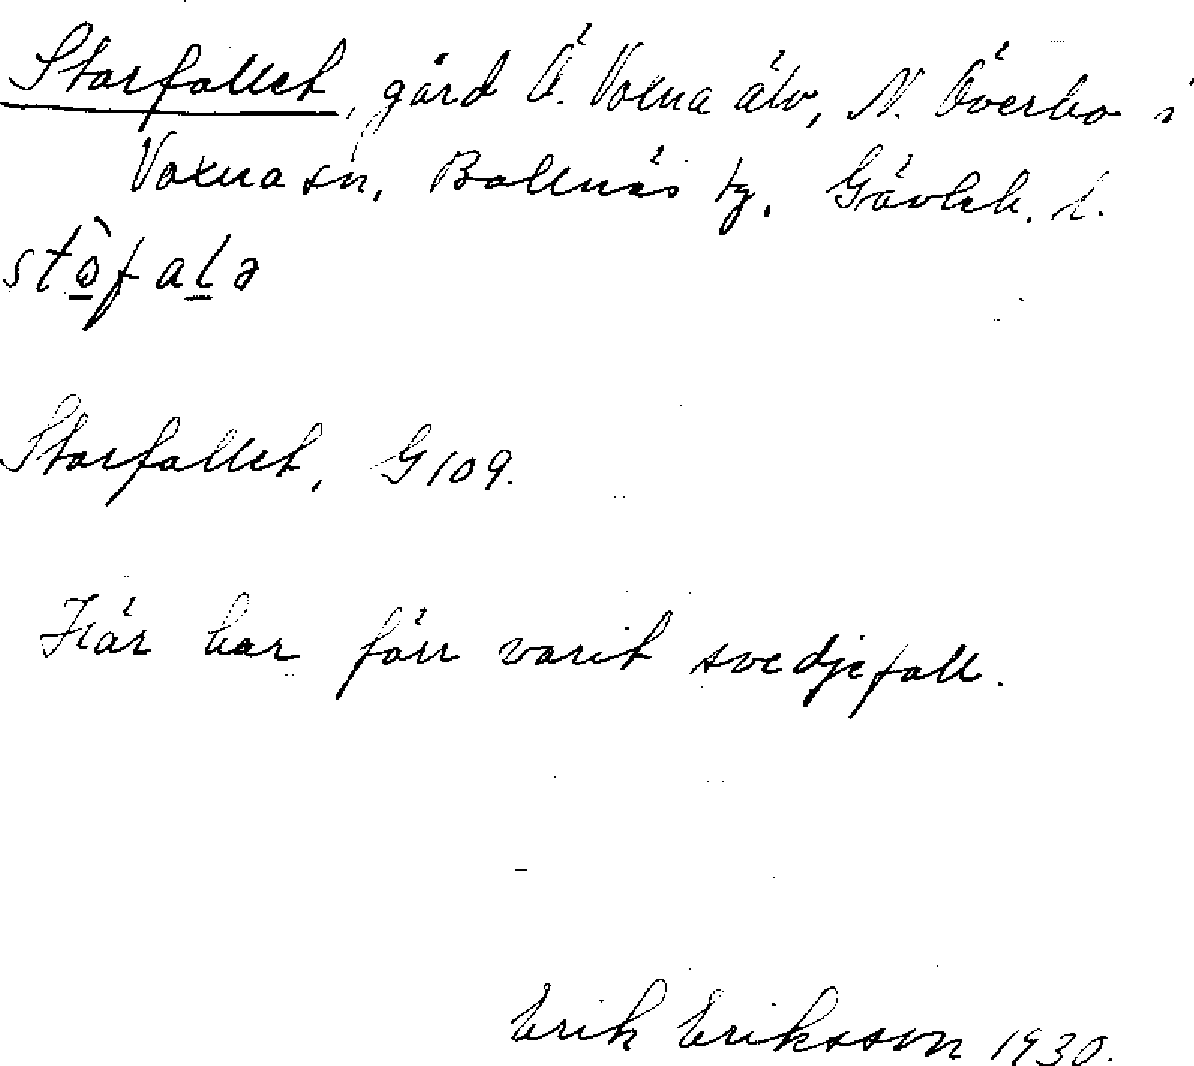 Storfallet, gård Ö. Voxna älv, N. Överbo i
Voxna sn, Bollnäs tg, Gävleb. l.
stò̱faḻə
Storfallet, G 109.
Här har förr varit svedjefall.
Erik Eriksson 1930.